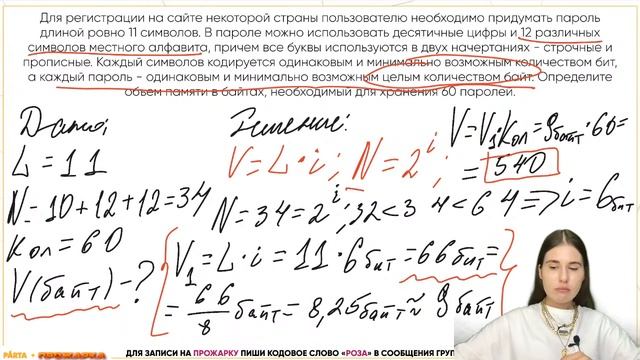 Для регистрации на сайте некоторой страны пользователю необходимо придумать пароль
длиной ровно 11 символов. В пароле можно использовать десятичные цифры и 12 различных
символов местного алфавита, причем все буквы используются в двух начертаниях – строчные и
прописные. Каждый символов кодируется одинаковым и минимально возможным количеством бит,
а каждый пароль – одинаковым и минимально возможным целым количеством байт. Определите
объем памяти в байтах, необходимый для хранения 60 паролей.
Дано:
L = 11
N = 10+12+12 = 34
кол = 60
V(байт) - ?
Решение:
V = L · i; N = 2^i;
N = 34 = 2^i; 32 < 34 < 64 => i = 6 бит
V₁ = L · i = 11 · 6 бит = 66 бит =
= 66/8 байт = 8,25 байт ≈ 9 байт
V = V₁ · кол = 9 байт · 60 =
= 540
PARTA
ДЛЯ ЗАПИСИ НА ПРОЖАРКУ ПИШИ КОДОВОЕ СЛОВО «РОЗА» В СООБЩЕНИЯ ГРУП